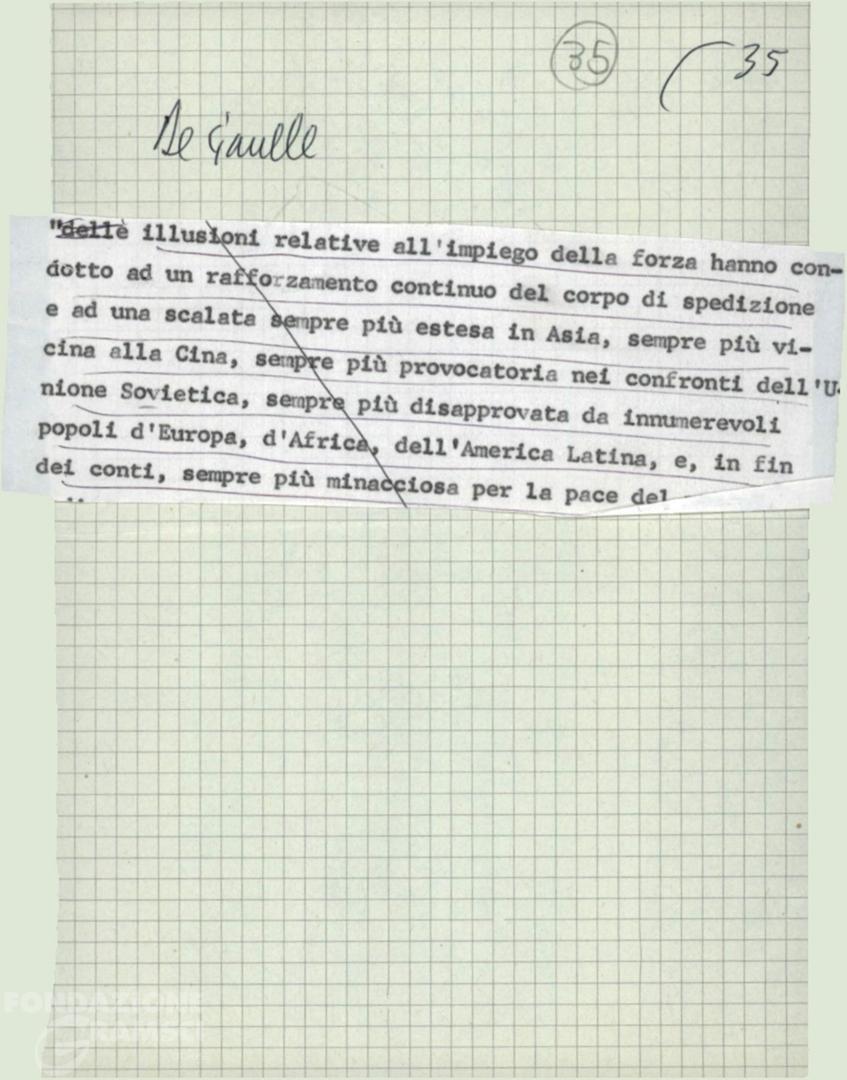 35
35
De Gaulle
"delle illusioni relative all'impiego della forza hanno con-
dotto ad un rafforzamento continuo del corpo di spedizione
e ad una scalata sempre più estesa in Asia, sempre più vi-
cina alla Cina, sempre più provocatoria nei confronti dell'U-
nione Sovietica, sempre più disapprovata da innumerevoli
popoli d'Europa, d'Africa, dell'America Latina, e, in fin
dei conti, sempre più minacciosa per la pace del
FONDAZIONE
GRAMSCI